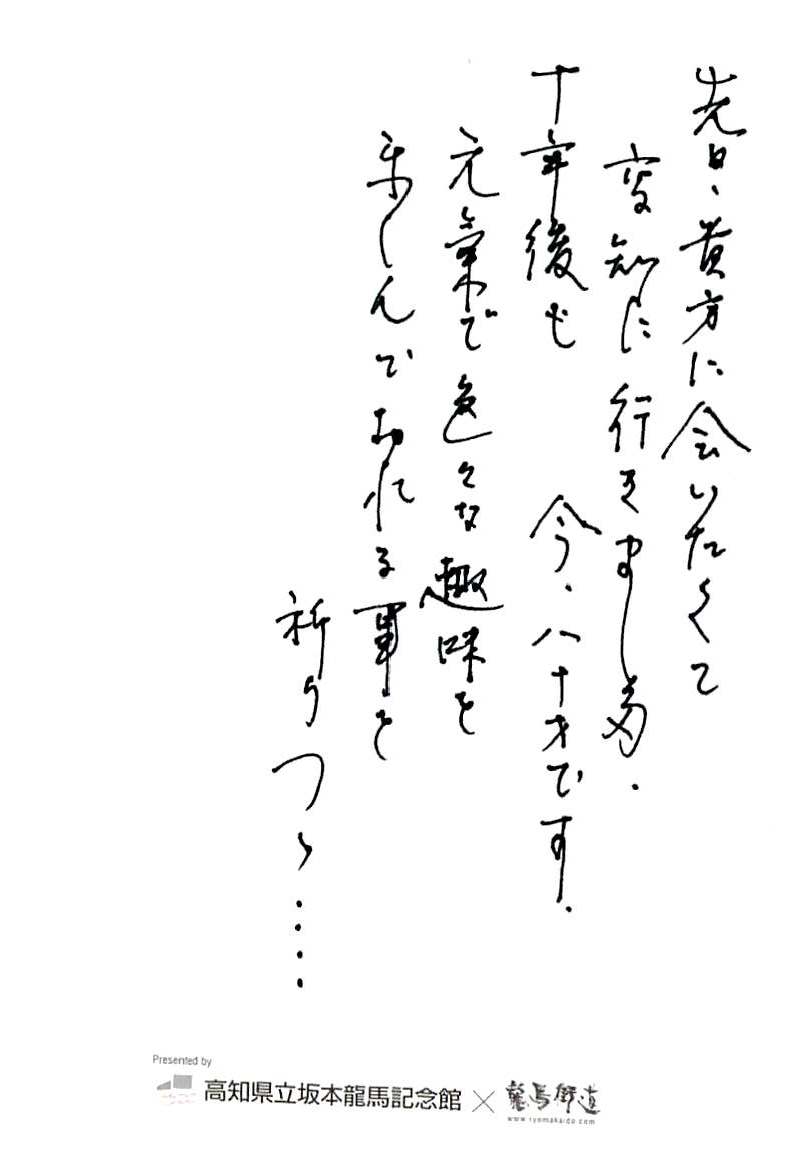 先日、貴方に会いたくて
高知に行きました.
十年後も 今、八十才です.
元氣で色々な趣味を
楽しんでおれる事を
祈りつゝ‥‥
Presented by
高知県立坂本龍馬記念館 × 龍馬街道
www.ryomakaido.com